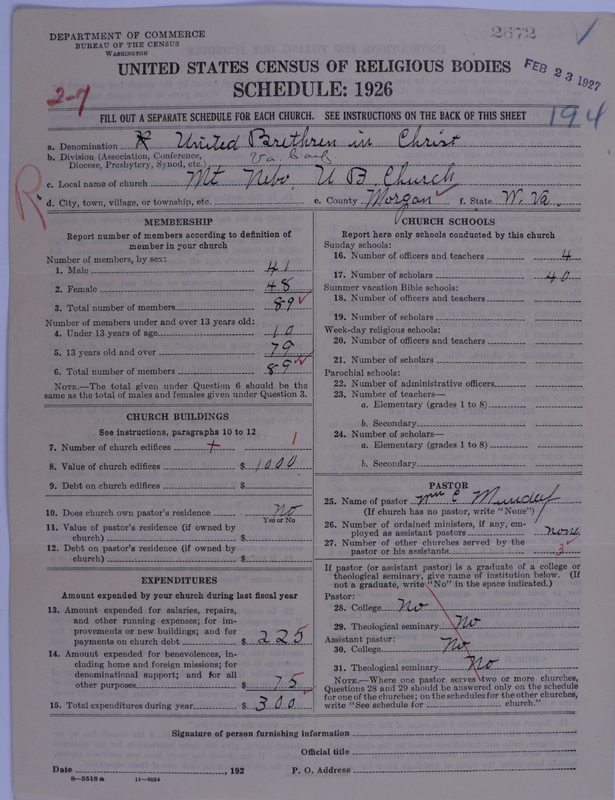 DEPARTMENT OF COMMERCE
BUREAU OF THE CENSUS
WASHINGTON
2672
FEB 23 1927
UNITED STATES CENSUS OF RELIGIOUS BODIES
SCHEDULE: 1926
2-7
194
FILL OUT A SEPARATE SCHEDULE FOR EACH CHURCH. SEE INSTRUCTIONS ON THE BACK OF THIS SHEET
a. Denomination United Brethren in Christ
b. Division (Association, Conference,
Diocese, Presbytery, Synod, etc.) Va.
c. Local name of church Mt Nebo, U B Church
R
d. City, town, village, or township, etc. e. County Morgan f. State W. Va.
MEMBERSHIP
Report number of members according to definition of
member in your church
Number of members, by sex:
1. Male 41
2. Female 48
3. Total number of members 89
Number of members under and over 13 years old:
4. Under 13 years of age 10
5. 13 years old and over 79
6. Total number of members 89
NOTE.—The total given under Question 6 should be the
same as the total of males and females given under Question 3.
CHURCH BUILDINGS
See instructions, paragraphs 10 to 12
7. Number of church edifices + 1
8. Value of church edifices $ 1000
9. Debt on church edifices $
10. Does church own pastor's residence No
Yes or No
11. Value of pastor's residence (if owned by
church) $
12. Debt on pastor's residence (if owned by
church) $
EXPENDITURES
Amount expended by your church during last fiscal year
13. Amount expended for salaries, repairs,
and other running expenses; for im-
provements or new buildings; and for
payments on church debt $ 225
14. Amount expended for benevolences, in-
cluding home and foreign missions; for
denominational support; and for all
other purposes $ 75
15. Total expenditures during year $ 300
CHURCH SCHOOLS
Report here only schools conducted by this church
Sunday schools:
16. Number of officers and teachers 4
17. Number of scholars 40
Summer vacation Bible schools:
18. Number of officers and teachers
19. Number of scholars
Week-day religious schools:
20. Number of officers and teachers
21. Number of scholars
Parochial schools:
22. Number of administrative officers
23. Number of teachers—
a. Elementary (grades 1 to 8)
b. Secondary
24. Number of scholars—
a. Elementary (grades 1 to 8)
b. Secondary
PASTOR
25. Name of pastor Wm C
(If church has no pastor, write "None")
26. Number of ordained ministers, if any, em-
ployed as assistant pastors none
27. Number of other churches served by the
pastor or his assistants 3
If pastor (or assistant pastor) is a graduate of a college or
theological seminary, give name of institution below. (If
not a graduate, write "No" in the space indicated.)
Pastor:
28. College No
29. Theological seminary No
Assistant pastor:
30. College No
31. Theological seminary No
NOTE.—Where one pastor serves two or more churches,
Questions 28 and 29 should be answered only on the schedule
for one of the churches; on the schedules for the other churches,
write "See schedule for church."
Signature of person furnishing information
Official title
Date , 192 P. O. Address
8-5518 a 11-9054